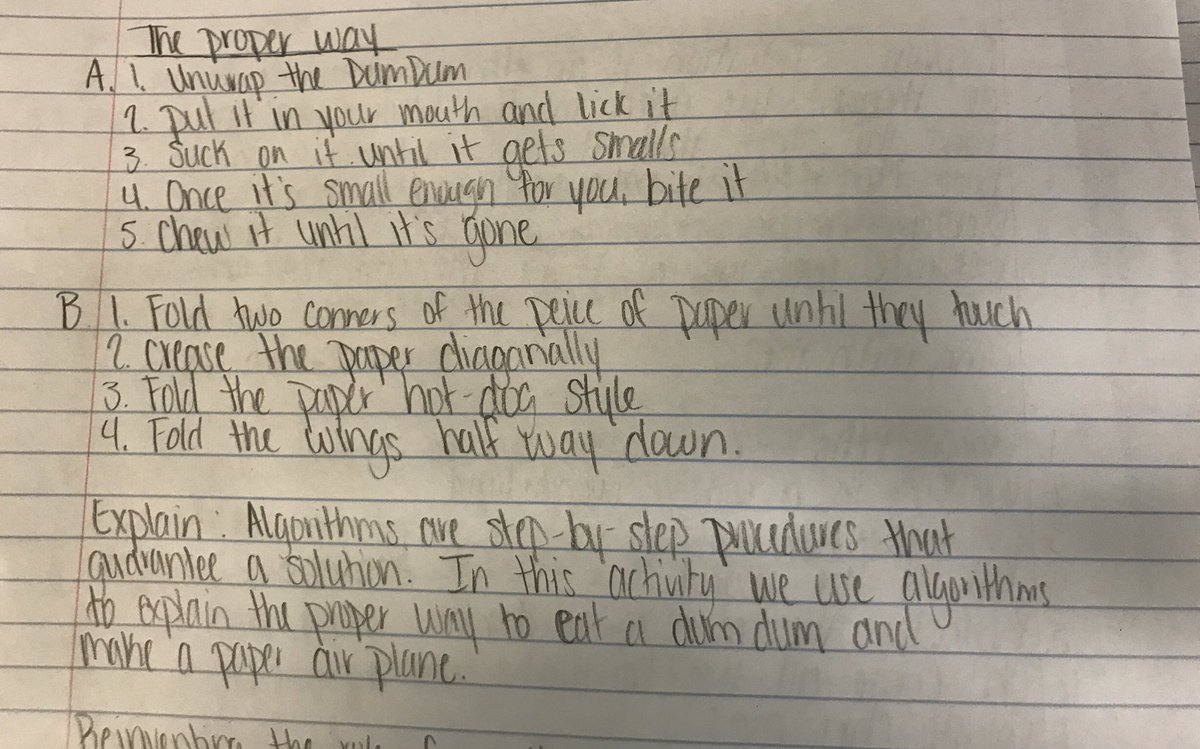 The proper way
A. 1. Unwrap the DumDum
2. put it in your mouth and lick it
3. Suck on it until it gets smalls
4. Once it's small enough for you, bite it
5. Chew it until it's gone
B. 1. Fold two corners of the peice of paper until they touch
2. crease the paper diaganally
3. Fold the paper hot-dog style
4. Fold the wings half way down.
Explain: Algorithms are step-by-step procedures that
guarantee a solution. In this activity we use algorithms
to explain the proper way to eat a dum dum and
make a paper air plane.
Reinventing the